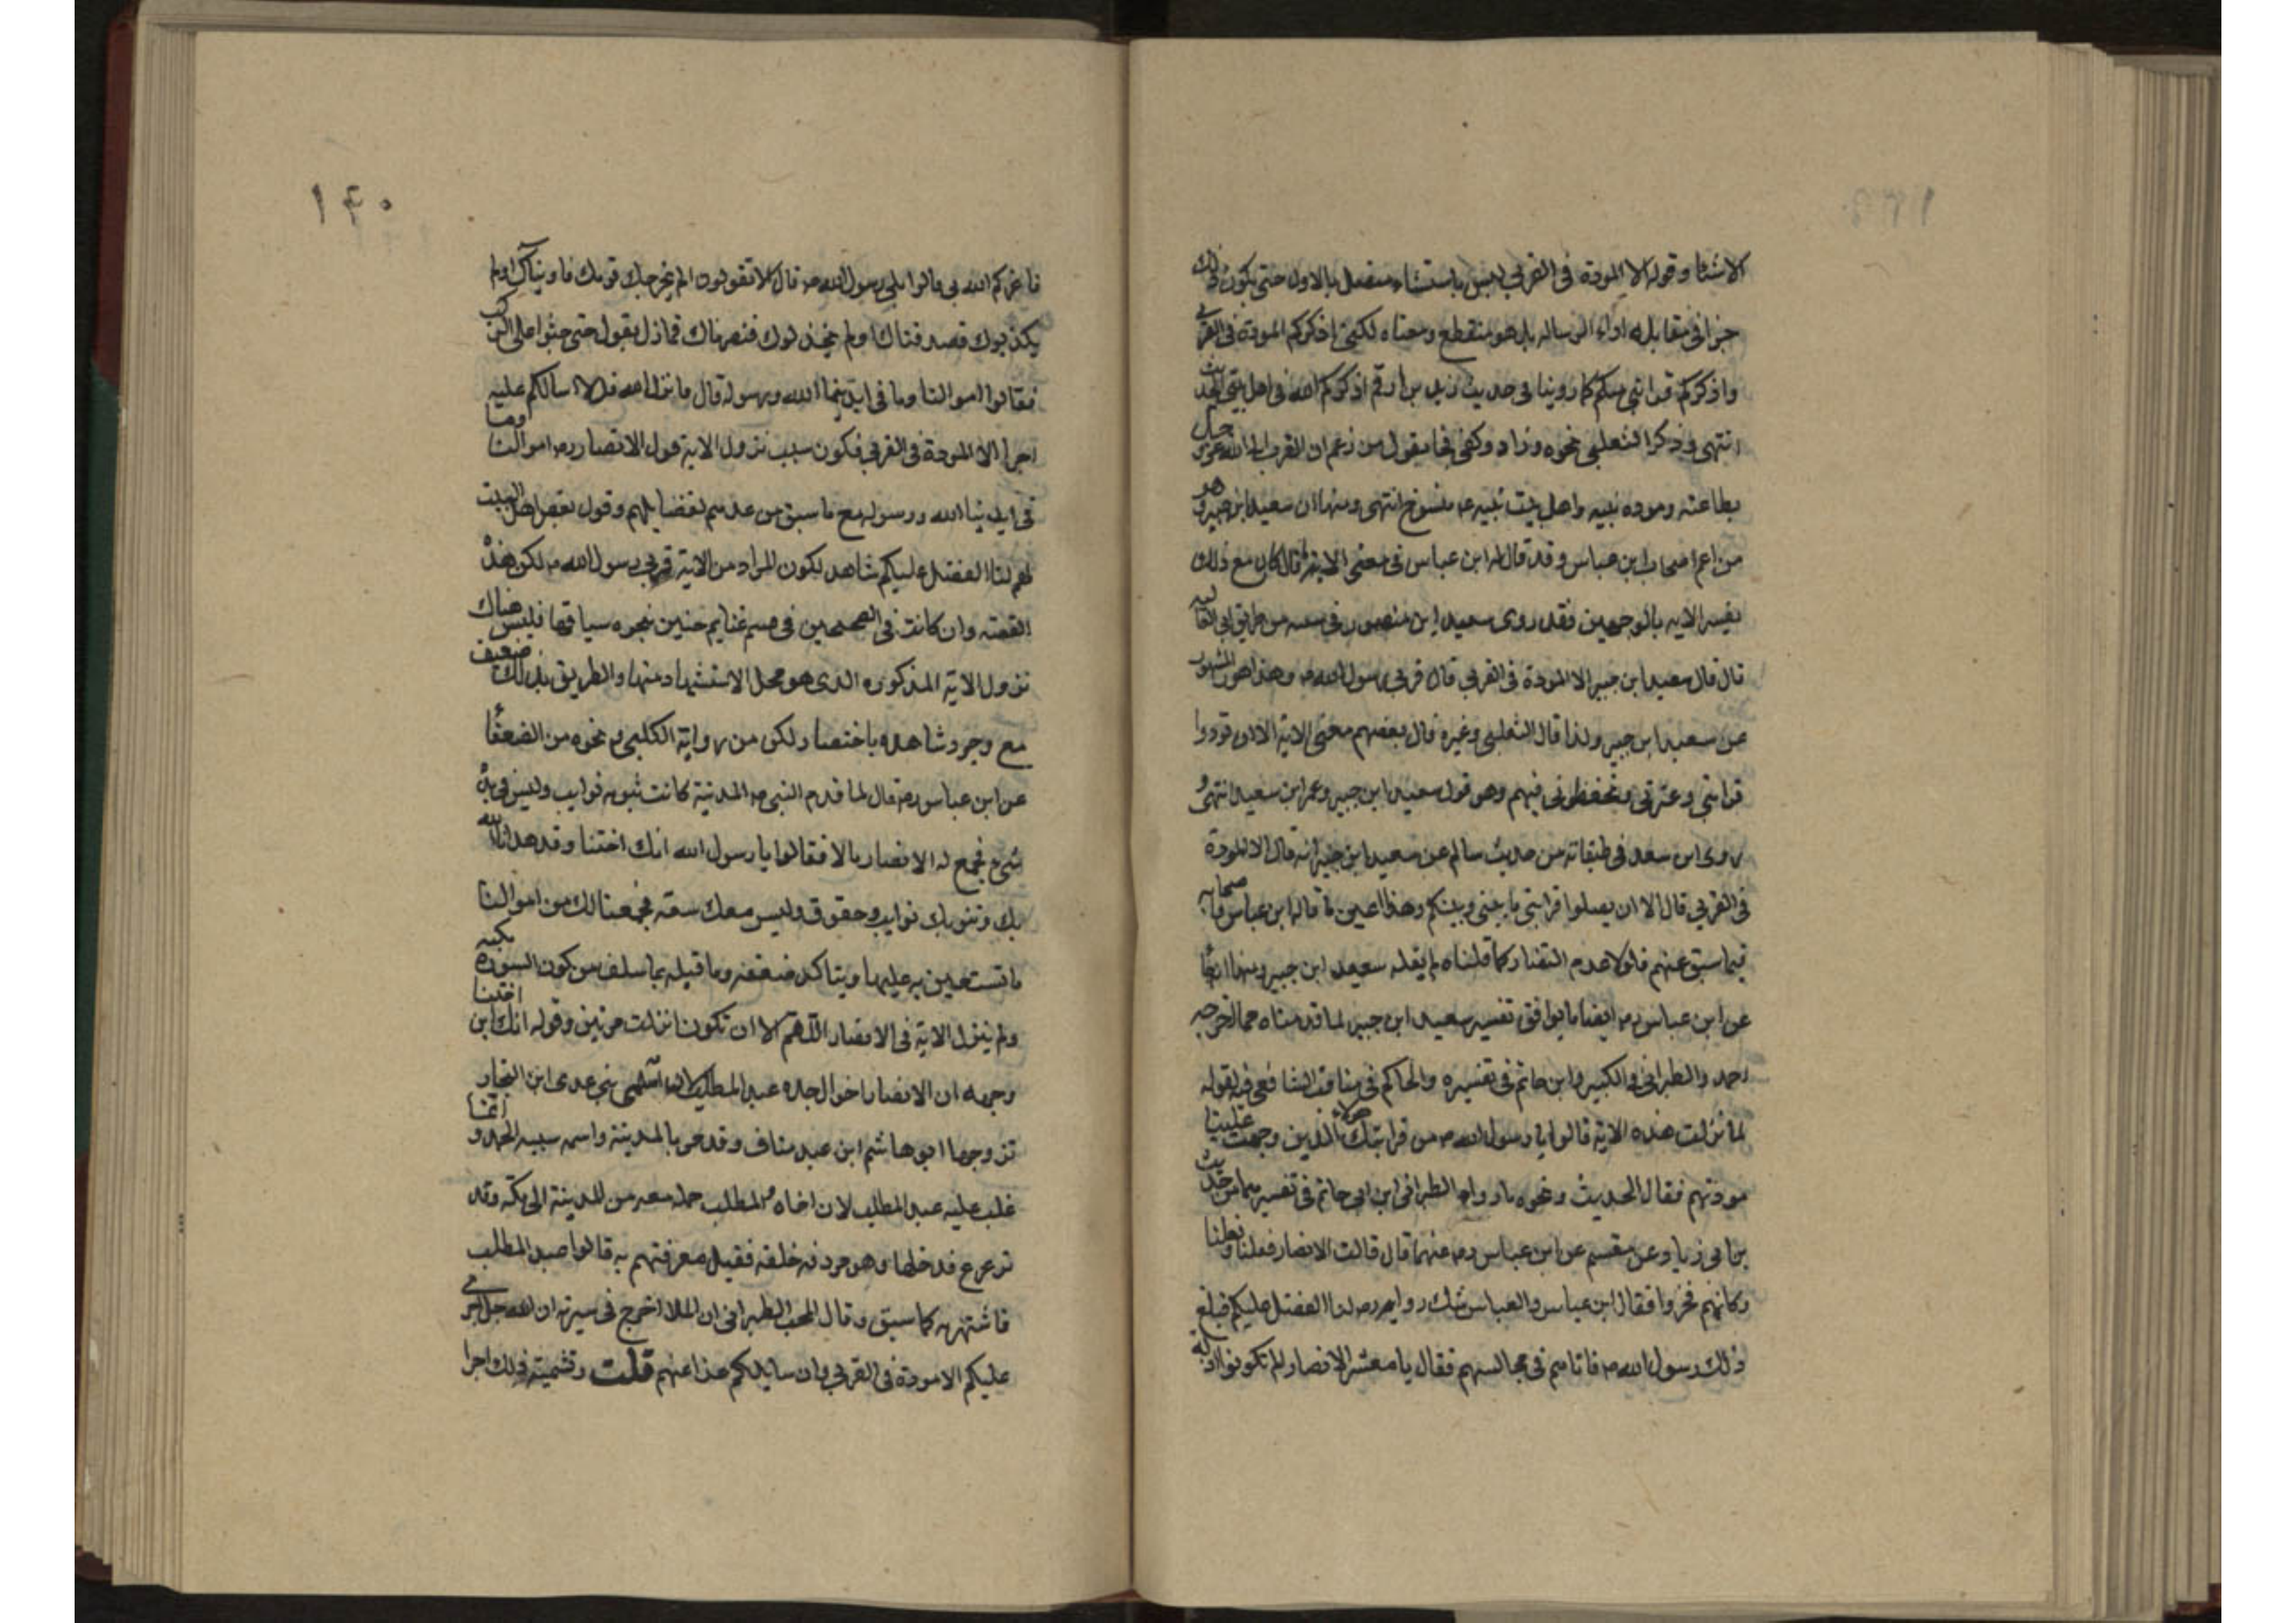 الاشنا وقوله الا المودة فى القربى ليس باستثناء متصل بالاول حتى يكون ذلك
جزا فى مقابله اداء الرساله بل هو منقطع ومعناه لكنى اذكركم المودة فى القربى
واذكركم قرابتى منكم كما روينا فى حديث زيد بن ارقم اذكركم الله فى اهل بيتى الحديث
انتهى وذكر الثعلبى نحوه وزاد وكفى قبحا بقول من زعم ان التقرب الى الله عز وجل
بطاعته وموده نبيه واهل بيت نبيه ع منسوخ انتهى ومنها ان سعيد ابن جبير وهو
من اعم اصحاب ابن عباس وقد قال له ابن عباس فى معنى الاية ما قال كان مع ذلك
يفسر الايه بالوجهين فقد روى سعيد ابن منصور فى سننه من طريق ابى العاليه
قال قال سعيد ابن جبير الا المودة فى القربى قال قربى رسول الله ص وهذا هو المشهور
عن سعيد ابن جبير ولذا قال الثعلبى وغيره قال بعضهم معنى الاية الا ان تودوا
قرابتى وعترتى وتحفظونى فيهم وهو قول سعيد ابن جبير وعمر ابن سعيد انتهى و
روى ابن سعد فى طبقاته من حديث سالم عن سعيد ابن جبير انه قال الا المودة
فى القربى قال الا ان يصلوا قرابتى ما بينى وبينكم وهذا عين ما قاله ابن عباس واصحابه
فيما سبق عنهم فلولا عدم التضاد كما قلناه لم يقله سعيد ابن جبير ومنها ان
عن ابن عباس رضه ايضا ما يوافق تفسير سعيد ابن جبير لما قدمناه مما اخرجه
احمد والطبرانى فى الكبير وابن حاتم فى تفسيره والحاكم فى مناقب الشافعى فى قوله
لما نزلت هذه الاية قالوا يا رسول الله ص من قرابتك هؤلاء الذين وجبت علينا
مودتهم فقال الحديث ونحوه ما رواه الطبرانى ابن ابى حاتم فى تفسيرهما من حديث
بن ابى زياد عن مقسم عن ابن عباس رضه عنهما قال قالت الانصار فعلنا وفعلنا
وكانهم فخروا فقال ابن عباس والعباس شك راويه رضه لنا الفضل عليكم فبلغ
ذلك رسول الله ص فاتاهم فى مجالسهم فقال يا معشر الانصار الم تكونوا اذلة
١٤٠
فاعزكم الله بى قالوا بلى رسول الله ص قال الا تقولون الم يخرجك قومك فاويناك اولم
يكذبوك فصدقناك اولم يخذلوك فنصرناك فما زل يقول حتى جثوا على الركب
فقالوا اموالنا وما فى ايدينا الله ورسوله قال ما نزل الله قل لا اسالكم عليه
اجرا الا المودة فى القربى فكون سبب نزول الاية قول الانصار رضه اموالنا وما
فى ايدينا الله ورسوله مع ما سبق من عدهم لفضايلهم وقول بعض اهل البيت
لهم لنا الفضل عليكم شاهد لكون المراد من الاية قربى رسول الله ص لكن هذه
القصه وان كانت فى الصحيحين فى قسم غنايم حنين بنحوه سياقها فليس هناك
نزول الاية المذكوره الذى هو محل الاستشهاد منها والطريق بذلك ضعيف
مع وجود شاهده باختصار لكن من رواية الكلبى ونحوه من الضعفا
عن ابن عباس رضه قال لما قدم النبى ص المدينة كانت تنوبه نوايب وليس فى يده
شىء فجمع له الانصار مالا فقالوا يا رسول الله انك اختنا وقد هدانا الله
بك وتنوبك نوايب وحقوق وليس معك سعة فجمعنا لك من اموالنا
ما تستعين به عليها ويتاكد ضعفه وما قبله بما سلف من كون السورة مكيه
ولم ينزل الاية فى الانصار اللهم الا ان تكون نزلت مرتين وقوله انك ابن اختنا
وجهه ان الانصار اخوال جده عبد المطلب بنى عدى ابن النجار
تزوجها ابو هاشم ابن عبد مناف وقدمو بالمدينة واسمه شيبه الحمد و انما
غلب عليه عبد المطلب لان اخاه المطلب حمله معه من المدينة الى مكه وقد
ترعرع فدخلها وهو مردفه خلفه فقيل معرفتهم به قالوا عبد المطلب
فاشتهر به كما سبق وقال المحب الطبرانى ان الملا اخرج فى سيرته ان الله جعل اجرى
عليكم الا مودة فى القربى وان سايلكم غدا عنهم قلت وتسميته ذلك اجرا